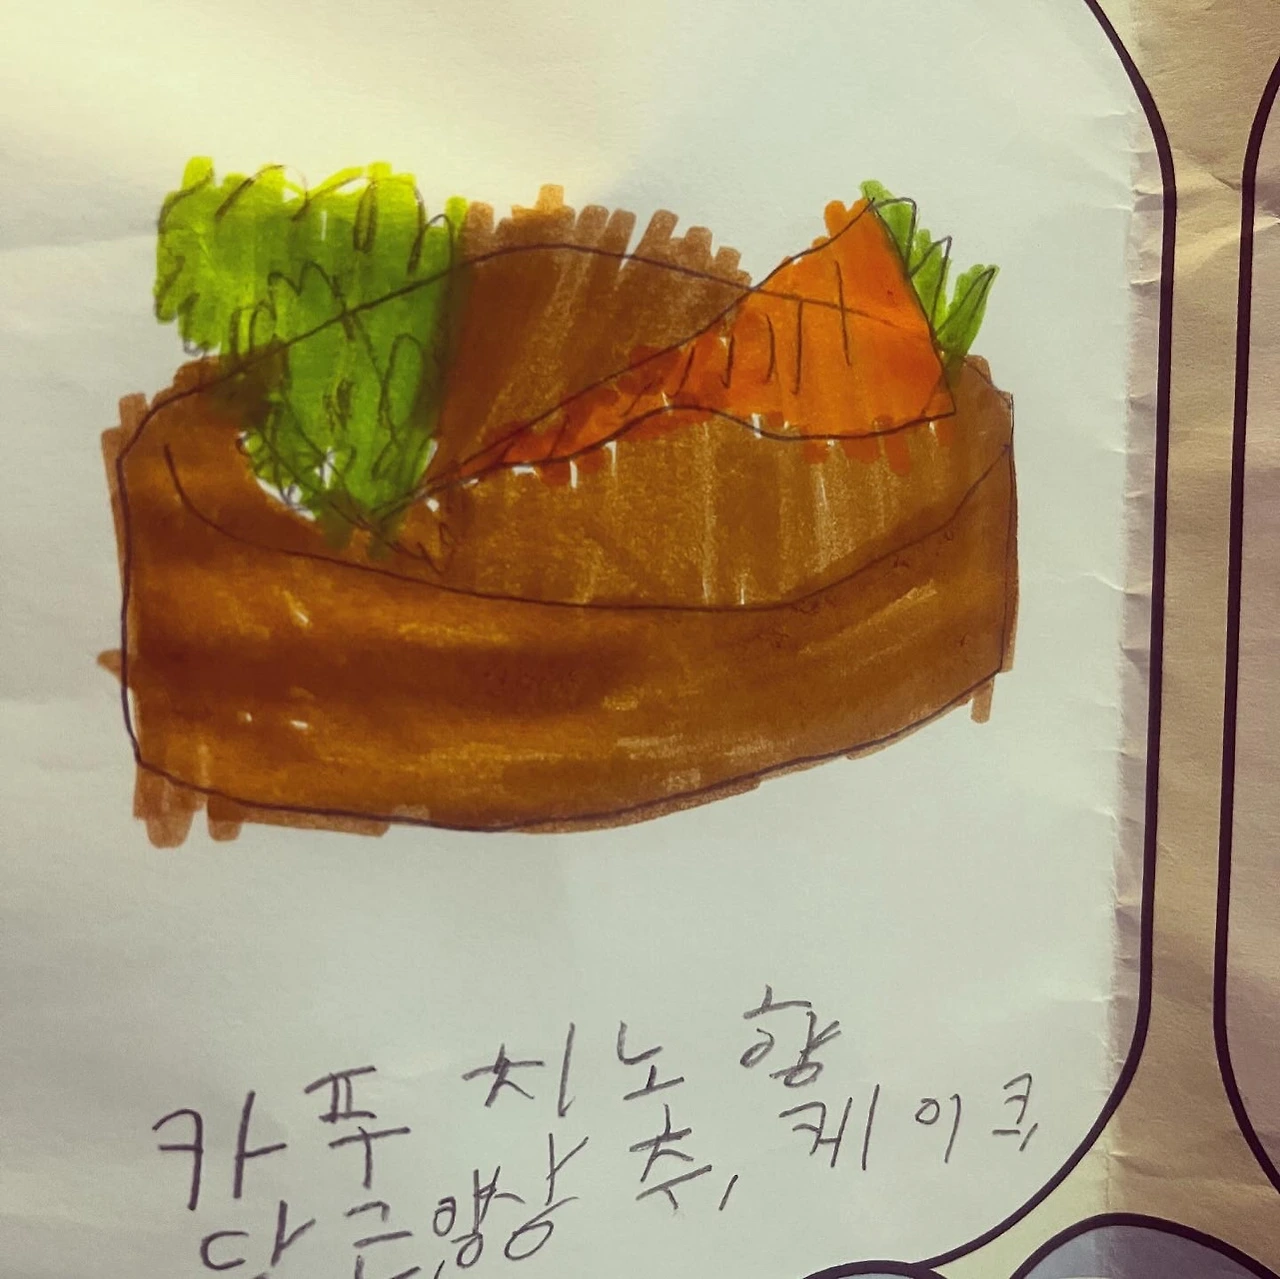 카푸치노 향
당근, 양상추, 케이크